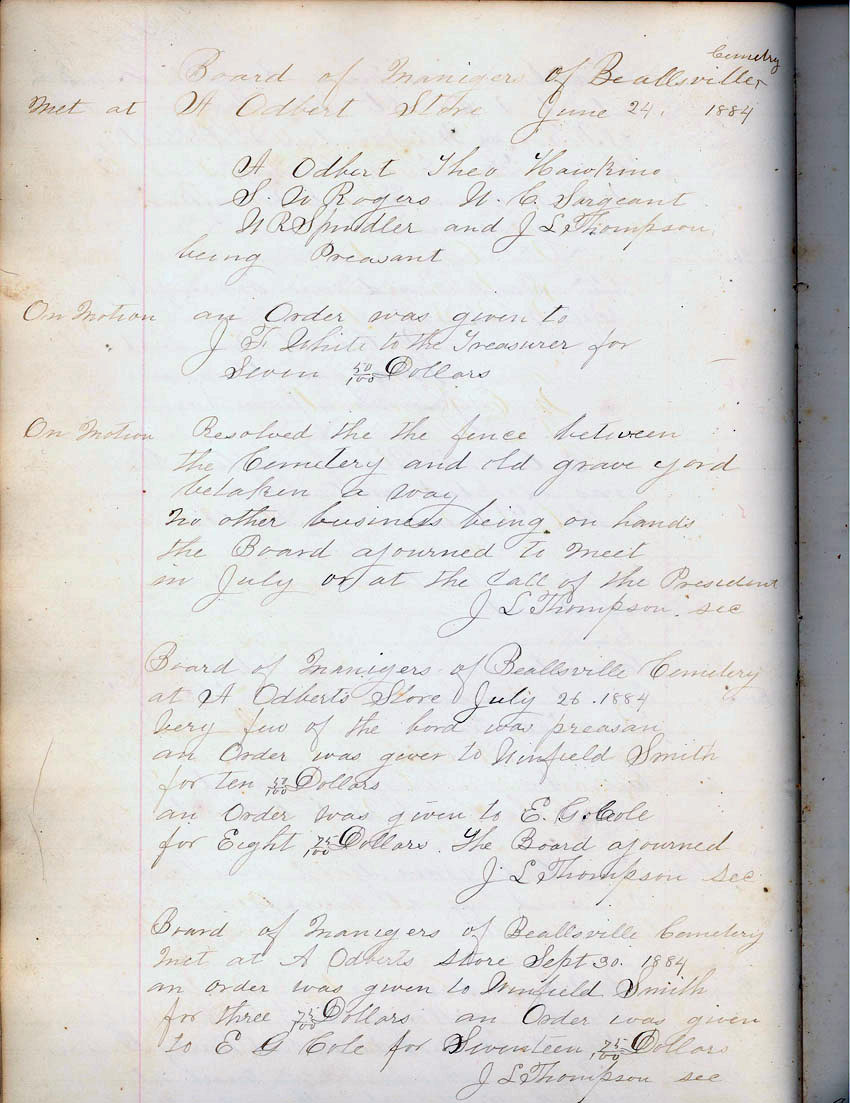 Cemetry
Board of Manigers of Beallsville
Met at A Odbert Store June 24. 1884
A Odbert Theo Hawkins
S. W Rogers W. C. Sargeant
W R Spindler and J L Thompson
being Preasant
On Motion an Order was given to
J F White to the Treasurer for
Seven 50/100 Dollars
On Motion Resolved the the fence between
the Cemetery and old grave yord
betaken a way
No other business being on hands
the Board ajourned to meet
in July or at the Call of the President
J L Thompson. sec
Board of Manigers of Beallsville Cemetery
at A Odberts Store July 26. 1884
Very few of the bord was preasan
an Order was given to Winfield Smith
for ten 50/100 Dollars
an Order was given to E. G. Cole
for Eight 75/100 Dollars. The Board ajourned
J. L Thompson Sec
Board of Manigers of Beallsville Cemetery
Met at A Odberts store Sept 30. 1884
an order was given to Winfield Smith
for three 75/100 Dollars an Order was given
to E G Cole for Seventeen 75/100 Dollars
J L Thompson sec